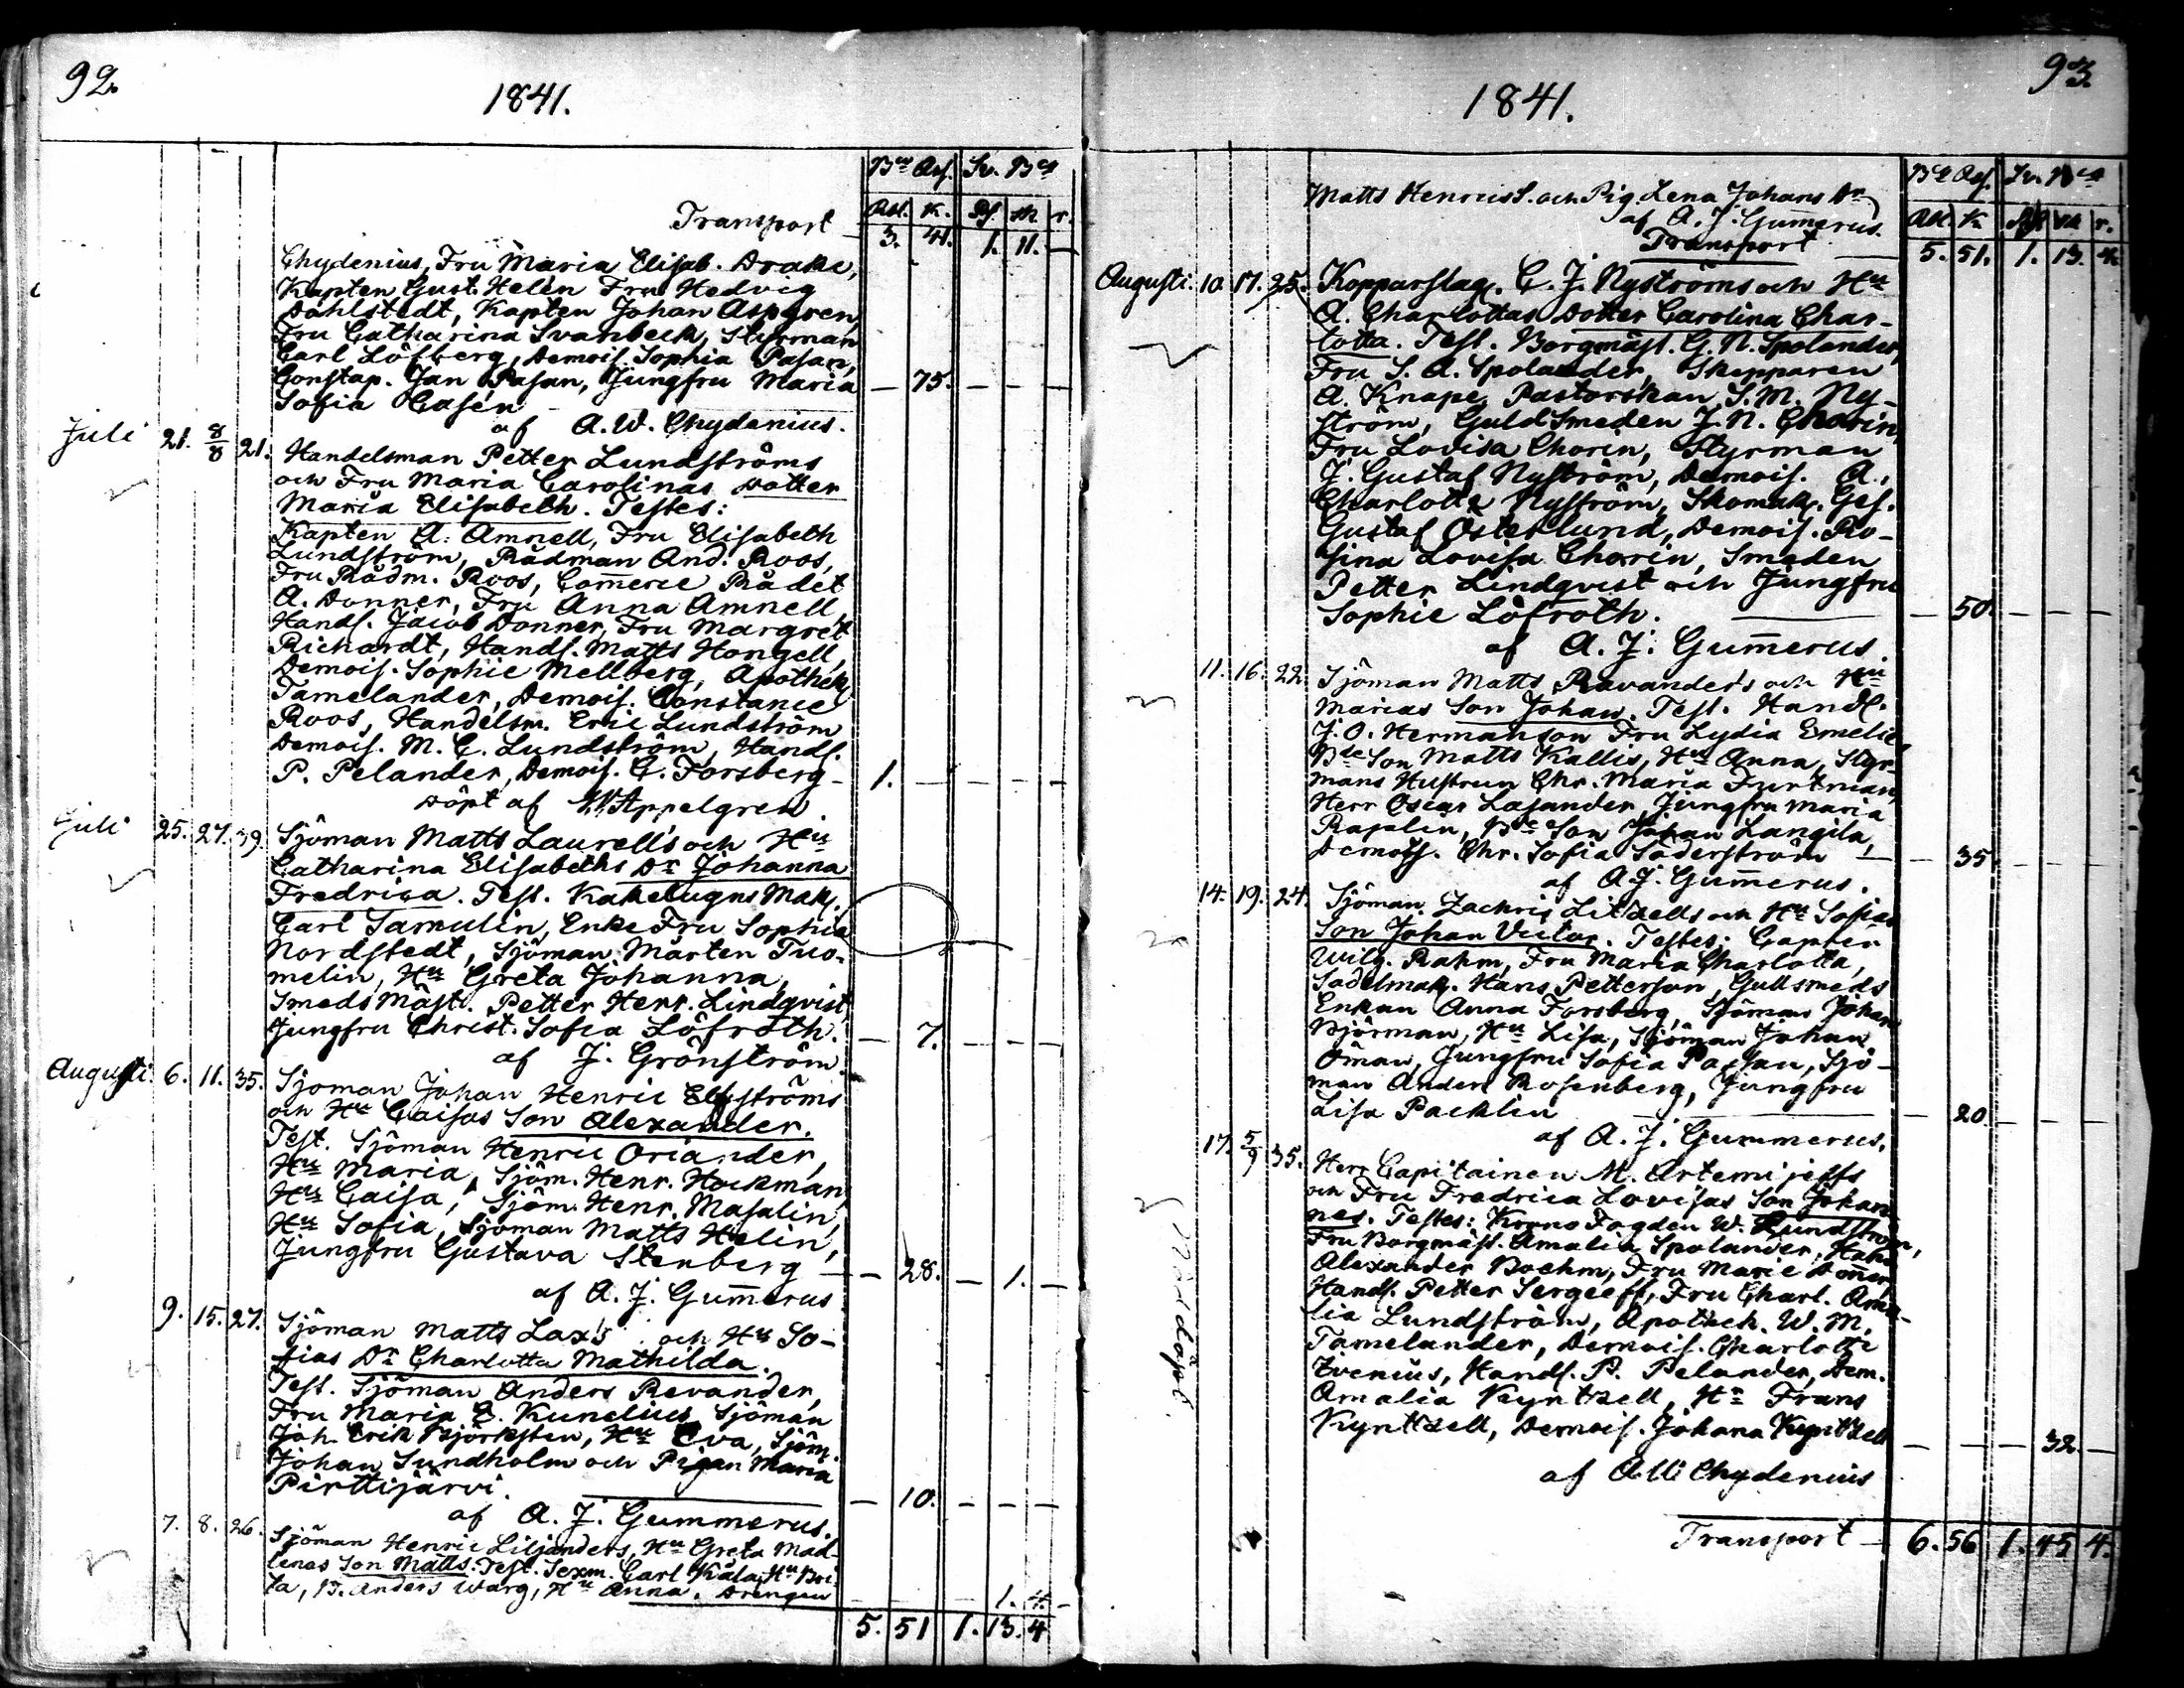 92.
1841.
Bco Ass. Sv. Bco
Transport Rbl. K. Rf. sk r.
3. 41. 1. 11. —
Chydenius, Fru Maria Elisab. Drake,
Kapten Gust. Helén Fru Hedvig
Dahlstedt, Kapten Johan Aspgren,
Fru Catharina Svanbeck, Styrman
Carl Löfberg, Demois. Sophia Pasan,
Constap. Jan Pasan, Jungfru Maria — 75. — — —
Sofia Casén
af A. W. Chydenius.
Juli 21. 8/8 21. Handelsman Petter Lundströms
och Fru Maria Carolinas Dotter
Maria Elisabeth. Testes:
Kapten A. Amnell, Fru Elisabeth
Lundström, Rådman And. Roos,
Fru Rådm. Roos, Com̄erce Rådet
A. Donner, Fru Anna Amnell,
Handl. Jacob Donner, Fru Margret
Richardt, Handl. Matts Hongell,
Demois. Sophie Mellberg, Apothek.
Tamelander, Demois. Constance
Roos, Handelsm. Eric Lundström
Demois. M. C. Lundström, Handl.
P. Pelander, Demois. C. Forsberg — 1. — — — —
Döpt af W. Appelgren
Juli 25. 27. 39. Sjöman Matts Laurells och Hu
Catharina Elisabeths Dr Johanna
Fredrica. Test. Kakelugns Mak.
Carl Samulin, Enke Fru Sophia
Nordstedt, Sjöman Mårten Tuo-
melin, Hu Greta Johanna,
Smeds Mäst. Petter Henr. Lindqvist,
Jungfru Christ. Sofia Löfroth. — 7. — — —
af J. Grönström.
Augusti 6. 11. 35. Sjöman Johan Henric Elgströms
och Hu Caisas Son Alexander.
Test. Sjöman Henric Oriander,
Hu Maria, Sjöm. Henr. Hockman,
Hu Caisa, Sjöm. Henr. Masalin,
Hu Sofia, Sjöman Matts Helin,
Jungfru Gustava Stenberg — — 28. — 1. —
af A. J. Gum̄erus
9. 15. 27. Sjöman Matts Lax's och Hu So-
fias Dr Charlotta Mathilda.
Test. Sjöman Anders Revander,
Fru Maria E. Kunelius, Sjöman
Joh. Erik Björksten, Hu Eva, Sjöm.
Johan Sundholm och Pigan Maria
Pirttijärvi. — 10. — — —
af A. J. Gummerus.
7. 8. 26. Sjöman Henric Liljanders, Hu Greta Mad-
lenas Son Matts. Test. Sexm. Carl Kåla, Hu Bri-
ta, B. Anders Warg, Hu Anna. Drengen — — — 1. 4.
5. 51 1. 13. 4
93.
1841.
Bco Ass. Sv. Bco
Matts HenricsS. och Pig. Lena Johans Dr
af A. J. Gum̄erus. Rbl. K Rf sk r.
Transport — 5. 51. 1. 13. 4
Augusti. 10. 17. 25. Kopparslag. C. J. Nyströms och Hu
A. Charlottas Dotter Carolina Char-
lotta. Test. Borgmäst. G. N. Spolander,
Fru S. A. Spolander, Skepparen
A. Knape, Pastorskan S. M. Ny-
ström, GuldSmeden J. N. Chorin,
Fru Lovisa Chorin, Styrman
J. Gustaf Nyström, Demois. A.
Charlotta Nyström, Skomak. Ges.
Gustaf Österlund, Demois. Ro-
sina Lovisa Chorin, Smeden
Petter Lindqvist och Jungfru
Sophie Löfroth. — 50. — — —
af A. J. Gum̄erus.
11. 16. 22. Sjöman Matts Ravanders och Hu
Marias Son Johan. Test. Handl.
J. O. Hermanson Fru Lydia Emelie,
Bde Son Matts Kallis, Hu Anna, Styr-
mans Hustrun Chr. Maria Furtman,
Herr Oscar Lasander, Jungfru Maria
Rajalin, Bde Son Johan Långila,
Demois. Chr. Sofia Söderström — — 35 — — —
af A. J. Gum̄erus.
14. 19. 24. Sjöman Zachris Litzells och Hu Sofias
Son Johan Victor. Testes: Capten
Wilg. Rahm, Fru Maria Charlotta,
Sadelmak. Hans Petterson, Gullsmeds
Enkan Anna Forsberg, Sjöman Johan
Björman, Hu Lisa, Sjöman Johan
Öman, Jungfru Sofia Passan, Sjö-
man Anders Rosenberg, Jungfru
Lisa Packlin — 20. — — —
af A. J. Gummerus.
17. 5/9 35. Herr Capitainen M. Artemijeffs
och Fru Fredrica Lovisas Son Johan-
nes. Testes: Krono Fogden W. Lundström,
Fru Borgmäst. Amalia Spolander,
Alexander Boehm, Fru Marie Don̄er,
Handl. Petter Sergeeff, Fru Charl. Ama-
lia Lundström, Apothek. W. M.
Tamelander, Demois. Charlotte
Evenius, Handl. P. Pelander, Dem.
Amalia Kyntzell, Hr Frans
Kyntzell, Demois. Johana Kyntzell — — — 32. —
af A. W. Chydenius
Nöddöpt.
Transport — 6. 56 1. 45 4.